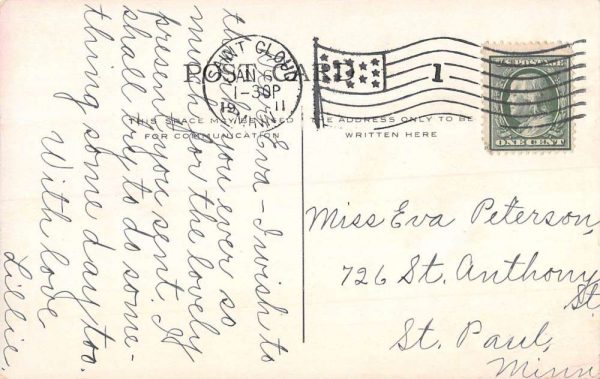 POST CARD
SAINT CLOUD
JAN 6
1-30P
1911
1
U.S. POSTAGE
ONE CENT
THIS SPACE MAY BE USED
FOR COMMUNICATION
THE ADDRESS ONLY TO BE
WRITTEN HERE
Dear Eva - I wish to
thank you ever so
much for the lovely
present you sent. I
shall try to do some-
thing some day too.
With love
Lillie.
Miss Eva Peterson,
726 St. Anthony
St.
St. Paul,
Minn